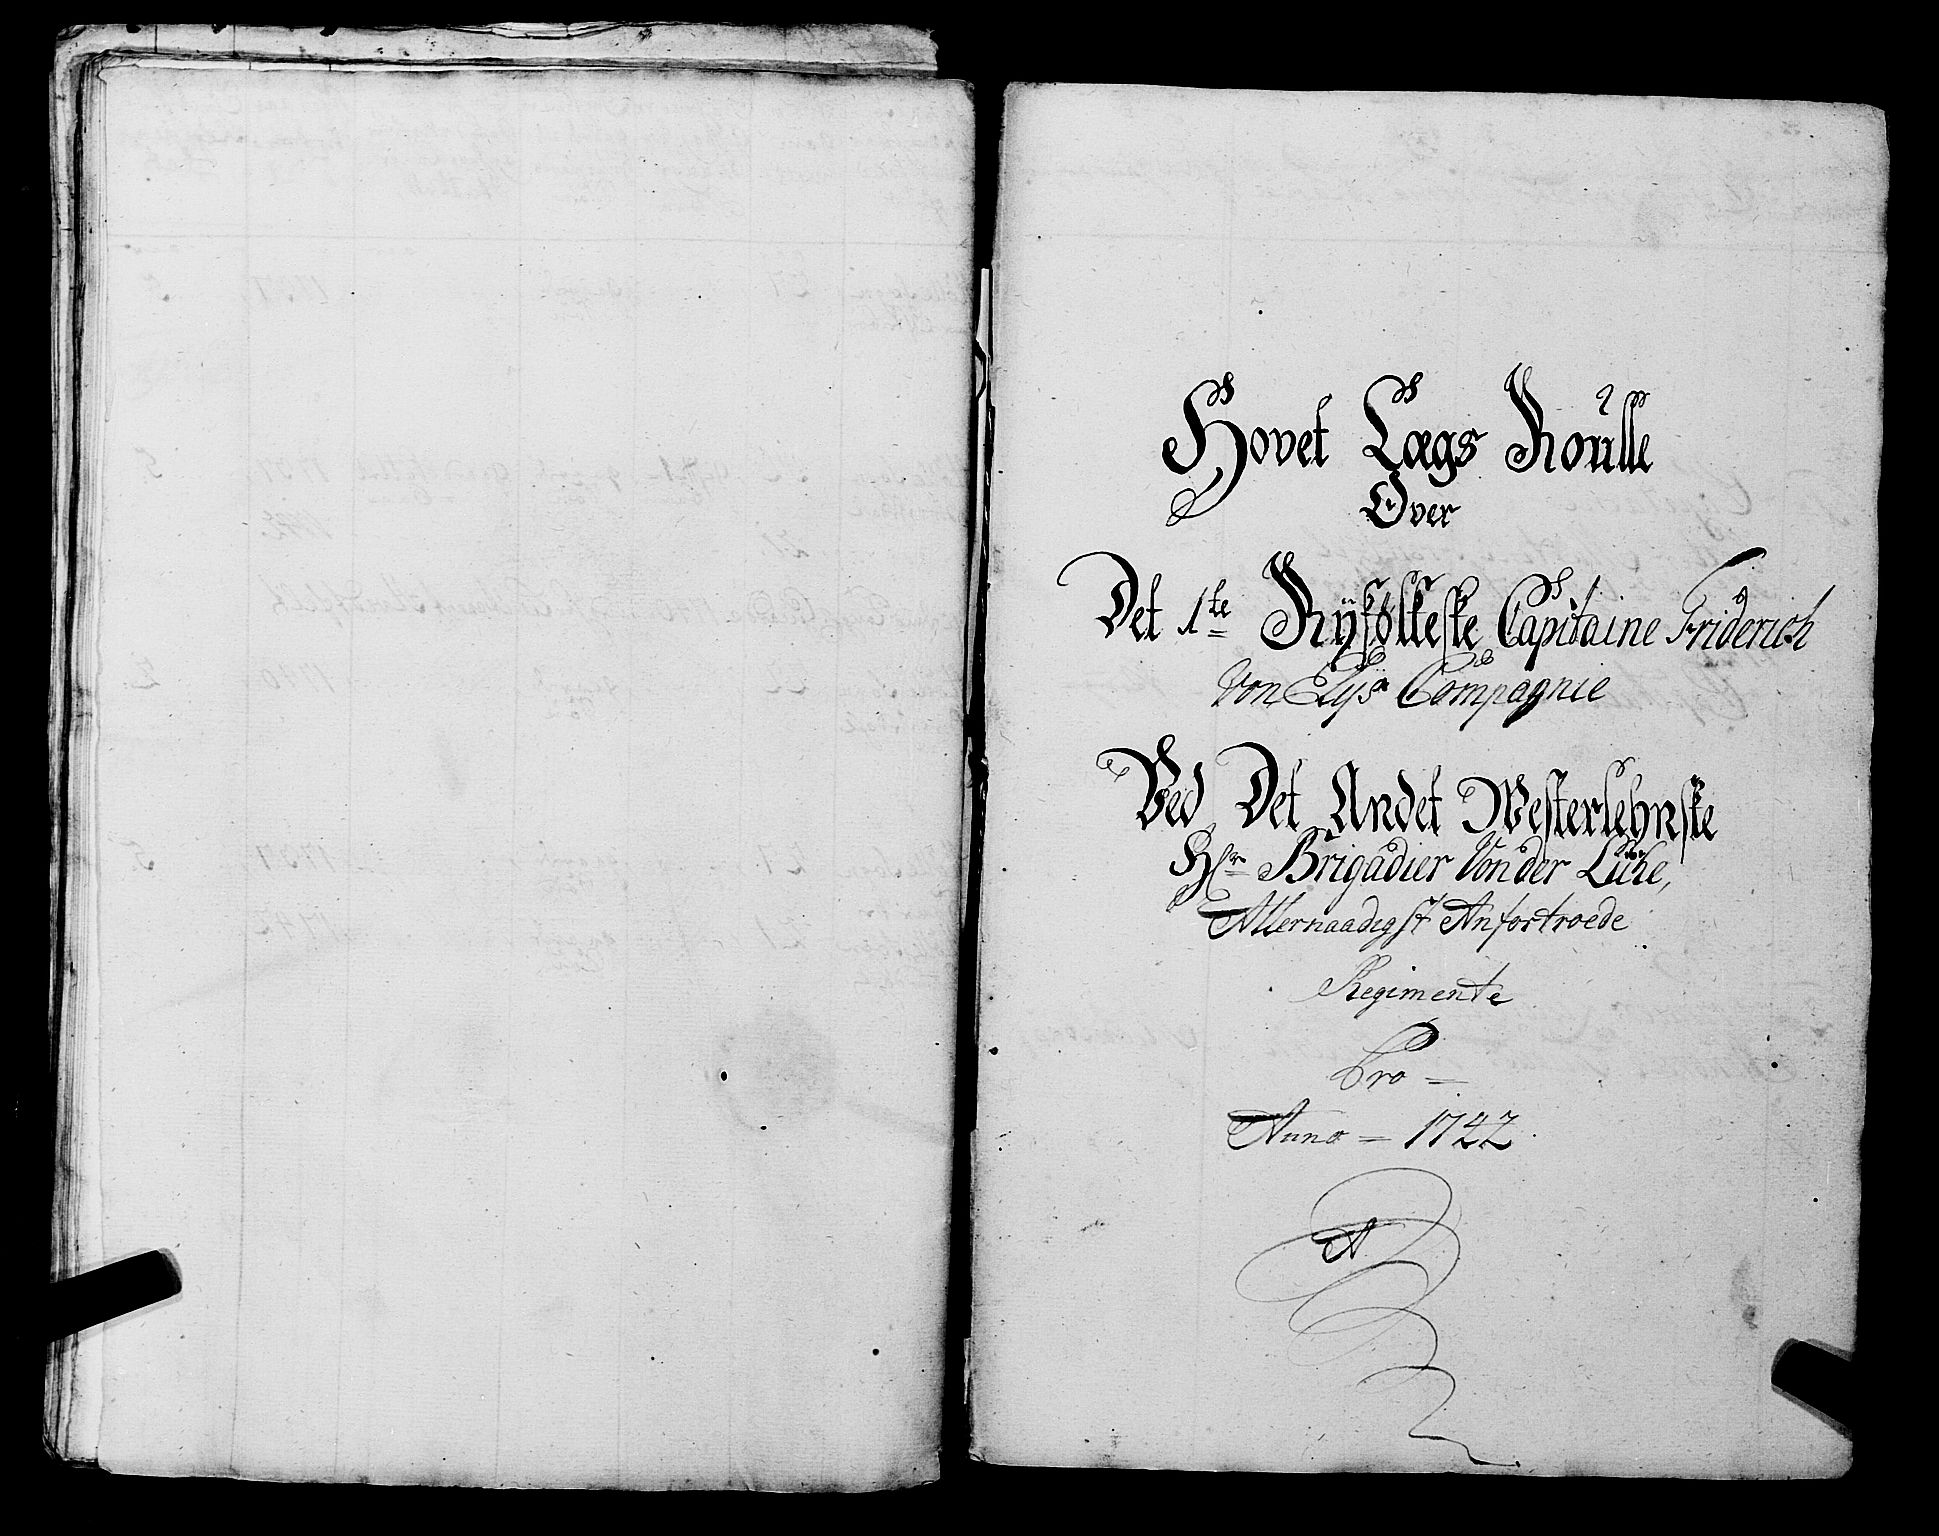 Hovet Lægs Roulle
Over
Det 1te Ryfølkeske Capitaine Friderich
Von Elys Compagnie
Ved Det Andet Westerlehnske
Hr Brigadier Von der Lühe,
Allernaadigst Anfortroede
Regimente
Pro =
Anno = 1742
A